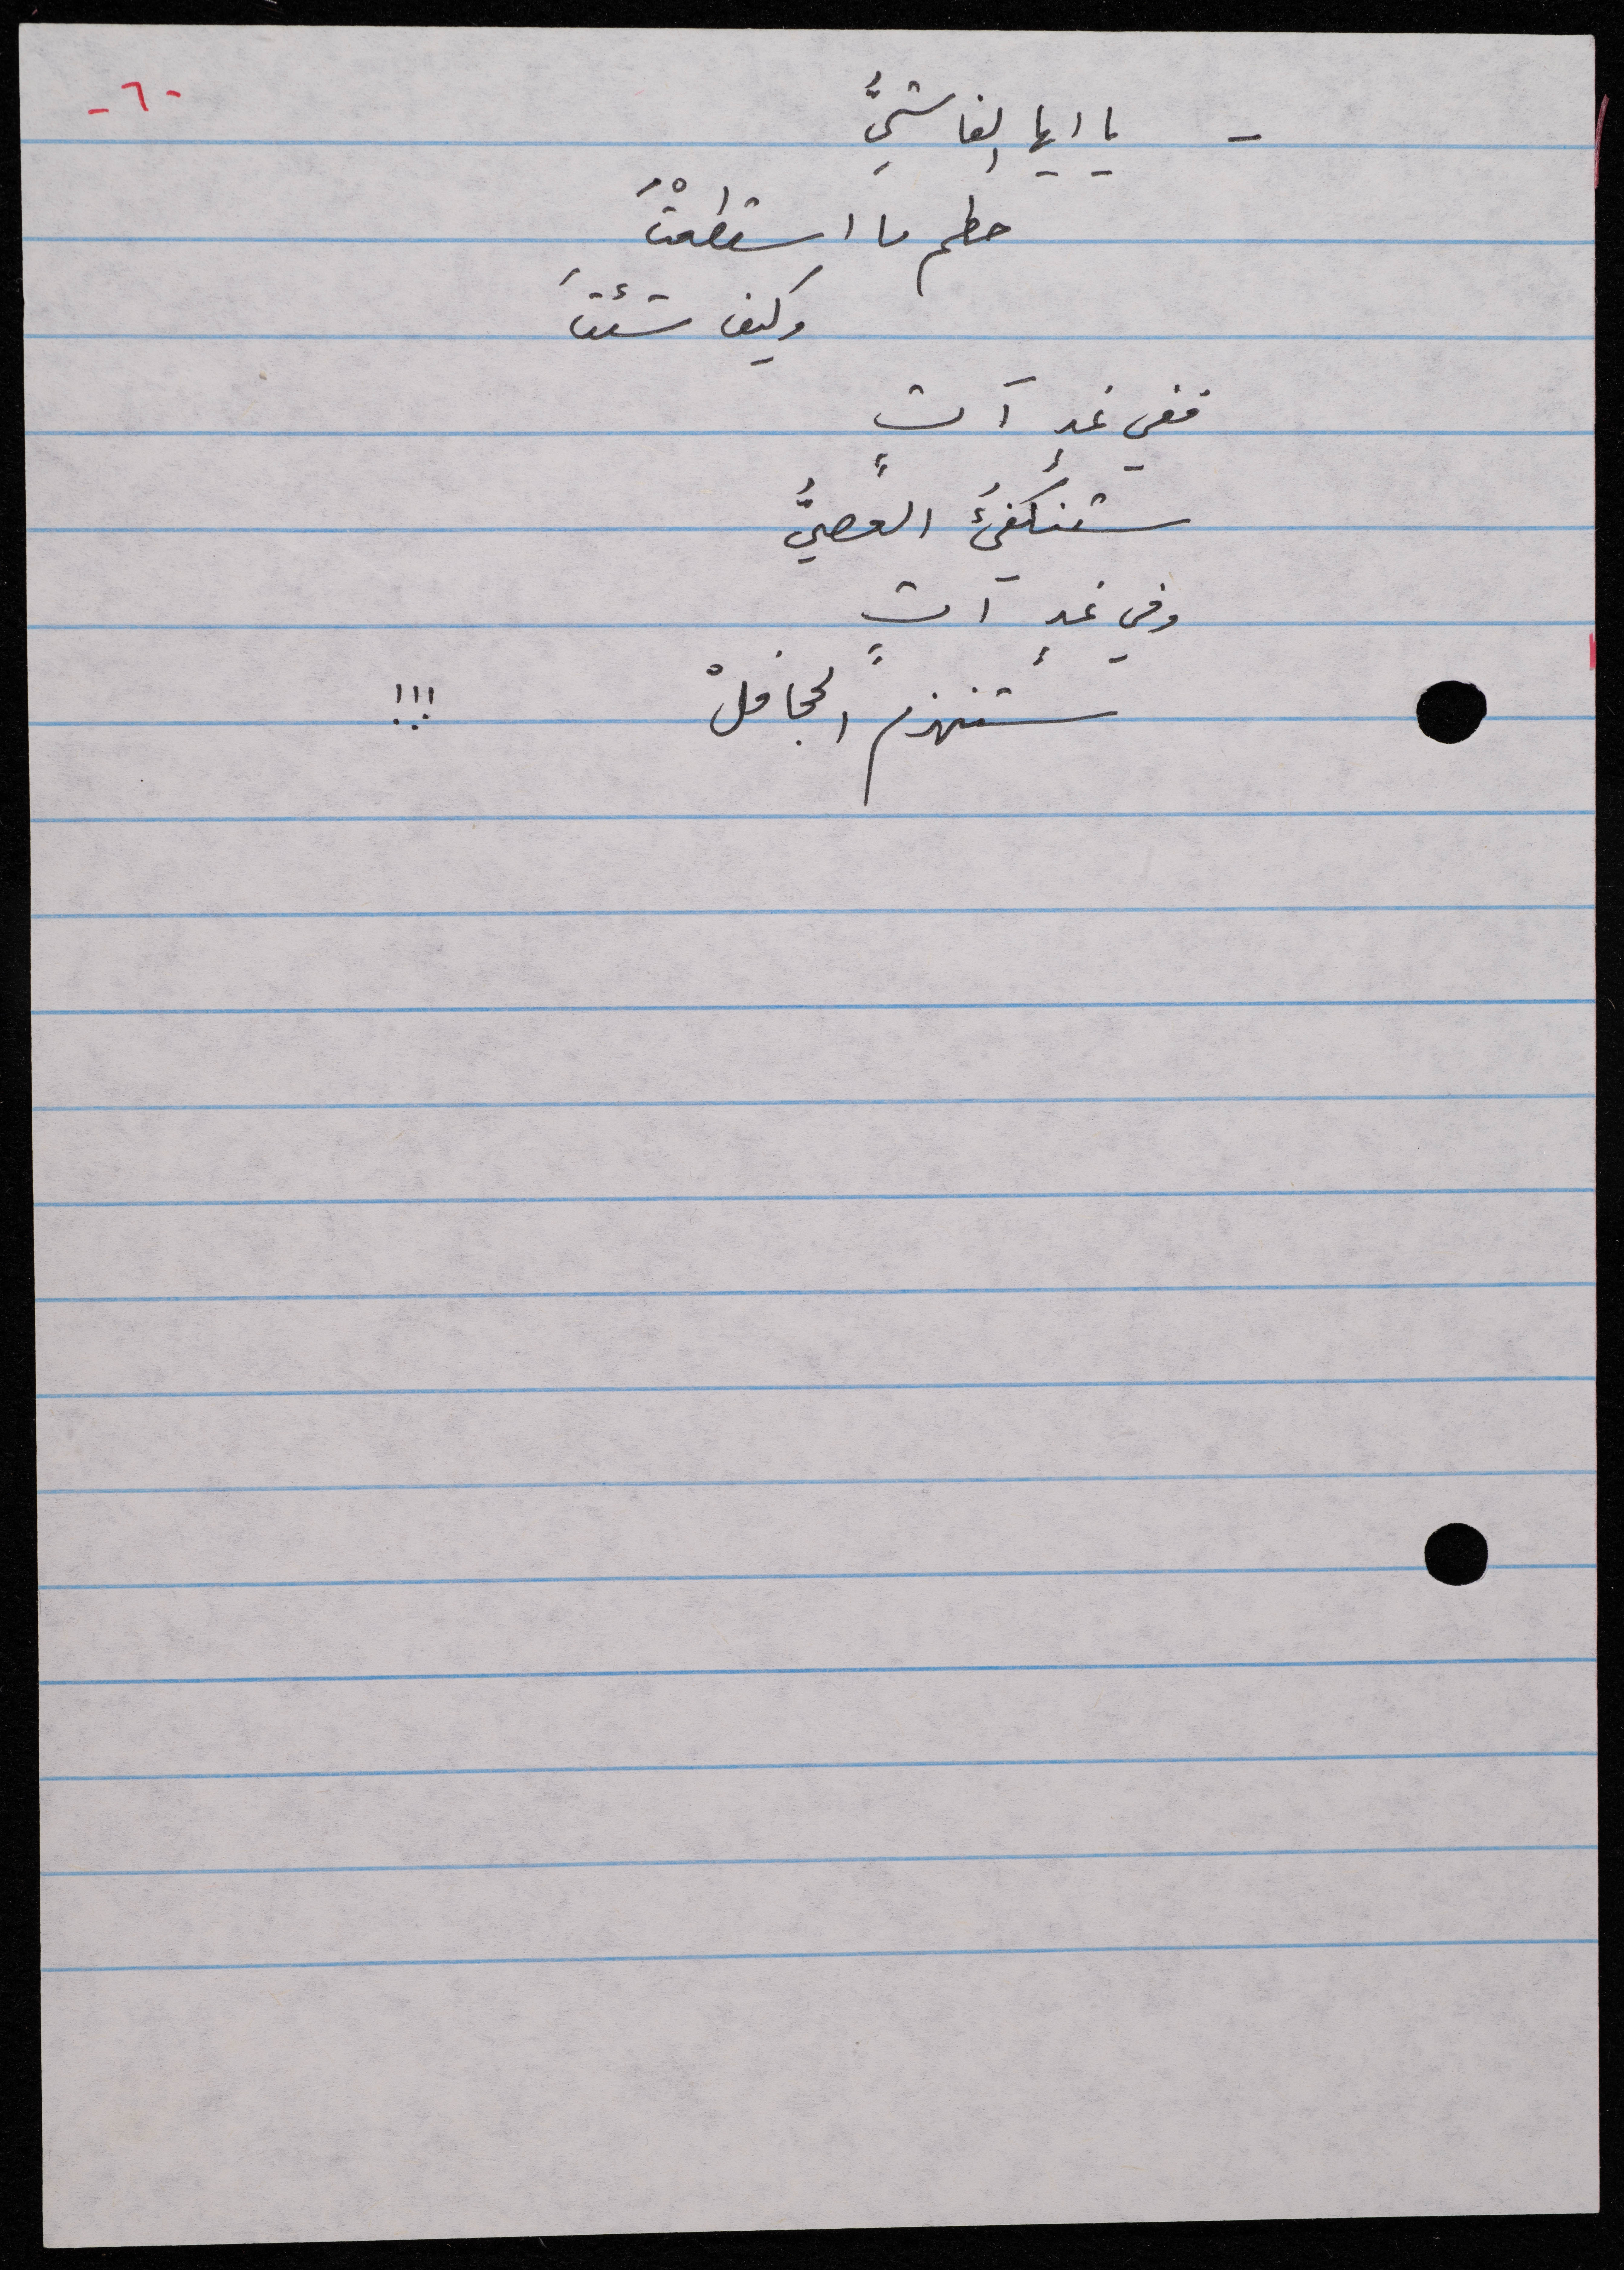 -٦-
- يا ايها الفاشيُّ
حطم ما استطعْتَ
وكيف شئتَ
ففي غدٍ آتٍ
ستنكفئُ العصيُّ
وفي غدٍ آتٍ
ستنهزم الجحافلْ !!!